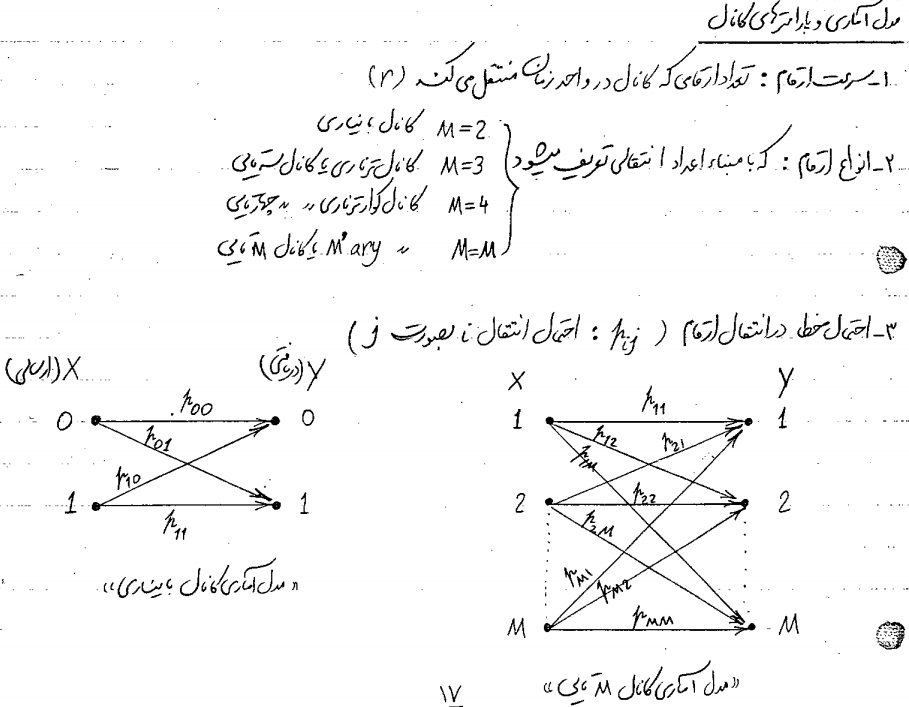 مدل آماری و پارامترهای کانال
۱ـ سرعت ارقام : تعداد ارقامی که کانال در واحد زمان منتقل می کند (r)
۲ـ انواع ارقام : که با مبناء اعداد انتقالی تعریف میشود
M=2 کانال باینری
M=3 کانال ترنری یا کانال سه تایی
M=4 کانال کوارترنری 〃 〃 چهارتایی
M=M 〃 M'ary یا کانال M تایی
۳ـ احتمال خطا در انتقال ارقام ( pij : احتمال انتقال i بصورت j )
X (ارسالی) Y (دریافتی)
0 p00 0
p01
p10
1 p11 1
«مدل آماری کانال باینری»
X Y
1 p11 1
p12 p21
p1M
2 p22 2
p2M
pM1 pM2
M pMM M
«مدل آماری کانال M تایی»
۱۷